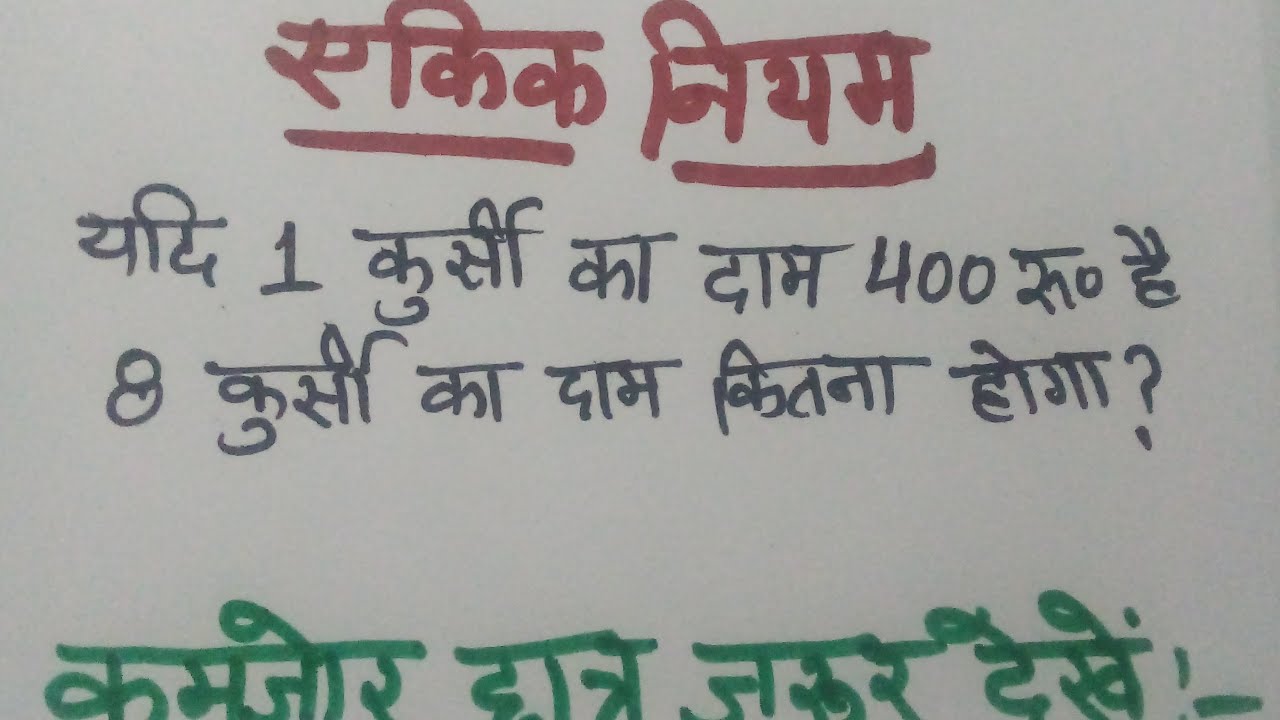 एकिक नियम
यदि 1 कुर्सी का दाम 400 रु० है
8 कुर्सी का दाम कितना होगा?
कमजोर छात्र जरूर देखें:-